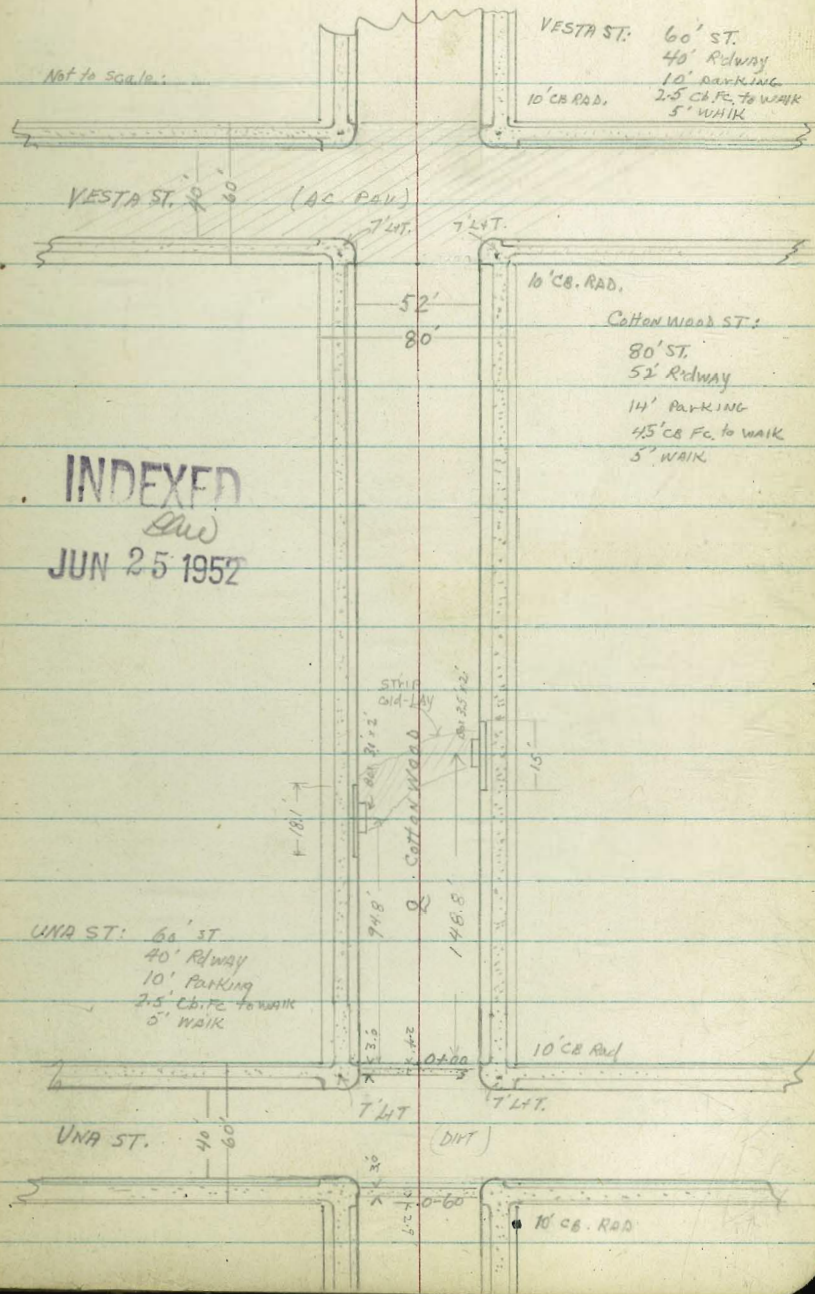 VESTA ST: 60' ST.
40' Rdway
10' Parking
2.5 Cb. Fc. to WAlK
5' WAlK
Not to Scale:
10' CB RAD.
VESTA ST. 40' 60' (AC PAV)
7' LT. 7' LT.
10' CB. RAD.
52'
80'
CottonWOOD ST:
80' ST.
52' Rdway
14' Parking
4.5' CB Fc. to WAlK
5' WAlK
INDEXED
JUN 25 1952
STRIP
Cold-LAY
2'
x 2'
15'
18.1'
CottonWOOD
94.8'
148.8'
UNA ST: 60' ST
40' Rdway
10' Parking
2.5' Cb. Fc to WAlK
5' WAlK
3.0
0+00
10' CB Rad
7' LT 7' LT.
UNA ST. 40' 60' (DIRT)
3.0
0-60
10' CB. RAD